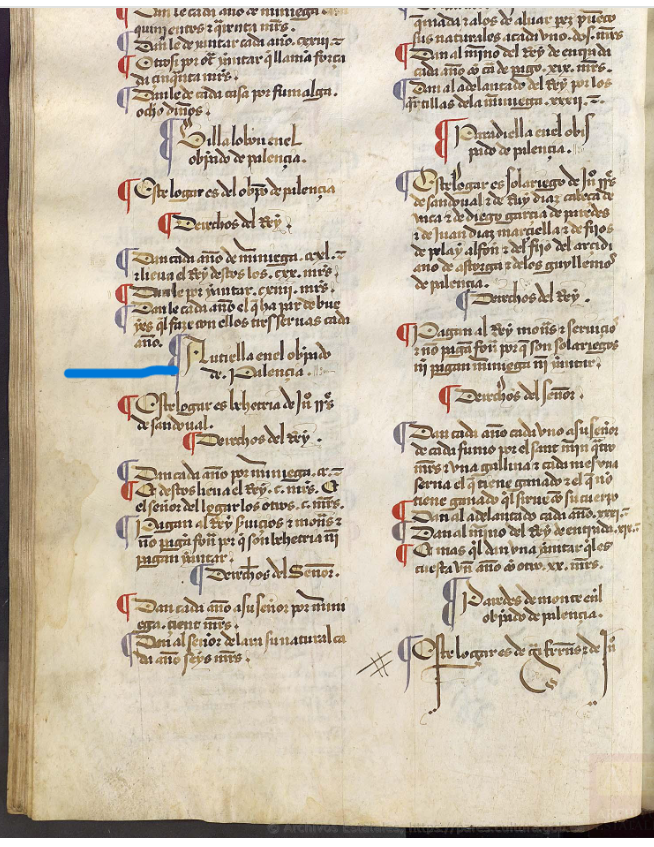 Dan le cada año de miniega.
quinientos z quarenta mrs.
Dan le de yantar cada año. cxxiii. z
Otrosi por ot yantar q llaman força
da cinquenta mrs.
Dan le de cada casa por fumalga.
ocho dineros.
Billalobon en el
obpado de palençia.
Este logar es del obpo de palençia
Derechos del Rey.
Dan cada año de miniega. cxxl. z
z lieua el Rey destos los. cxx. mrs.
Dan le por yantar. cxiiii. mrs.
Dan le cada año el q ha par de bue
yes q faze con ellos tres sernas cada
año.
en el obpado
de Palençia.
Este logar es behetria de Jn rrs
de sandoual.
Derechos del Rey.
Dan cada año por miniega. cc. z
Et destos lieua el Rey. c. mrs. Et
el señor del logar los otros. c. mrs.
Pagan al Rey seruiçios z mons z
no pagan fon por q son behetria ni
pagan yantar.
Derechos del Señor.
Dan cada año a su señor por mini
ega. çient mrs.
Dan al señor dela su natural ca
da año seys mrs.
quiada z alos de aluar pez puerto
sus naturales a cada vno. dos. mrs
Dan al mino del Rey de entrada
cada año co ca de pago. xix. mrs.
Dan al adelantado del Rey por los
dela miniega. xxxii. z.
Paradiella en el obis
pado de palençia.
Este logar es solariego de Jn rrs
de sandoual z de Ruy diaz cabeça de
vaca z de diego garcia de paredes
z de Juan diaz z de fijos
de pelay alfon z del fijo del arcidi
ano de astorga z delos guyllemos
de palençia.
Derechos del Rey.
Pagan al Rey mons z seruiçio
z no pagan fon por q son solariegos
ni pagan miniega ni yantar.
Derechos del señor.
Dan cada año cada vno a su señor
de cada fumo por el sant min qtro
mrs z vna gallina z cada mes vna
serna el q tiene ganado z el q no
tiene ganado q l sirue co su cuerpo
Dan al adelantado cada año. xxxi.
Dan al mino del Rey de entrada. xix. z
Et mas q l dan vna yantar q les
cuesta vn año co otro. xx. mrs.
Paredes de monte en l
obpado de palençia.
Este logar es de de Jn
© Archivos Estatales, https://pares.cultura.gob